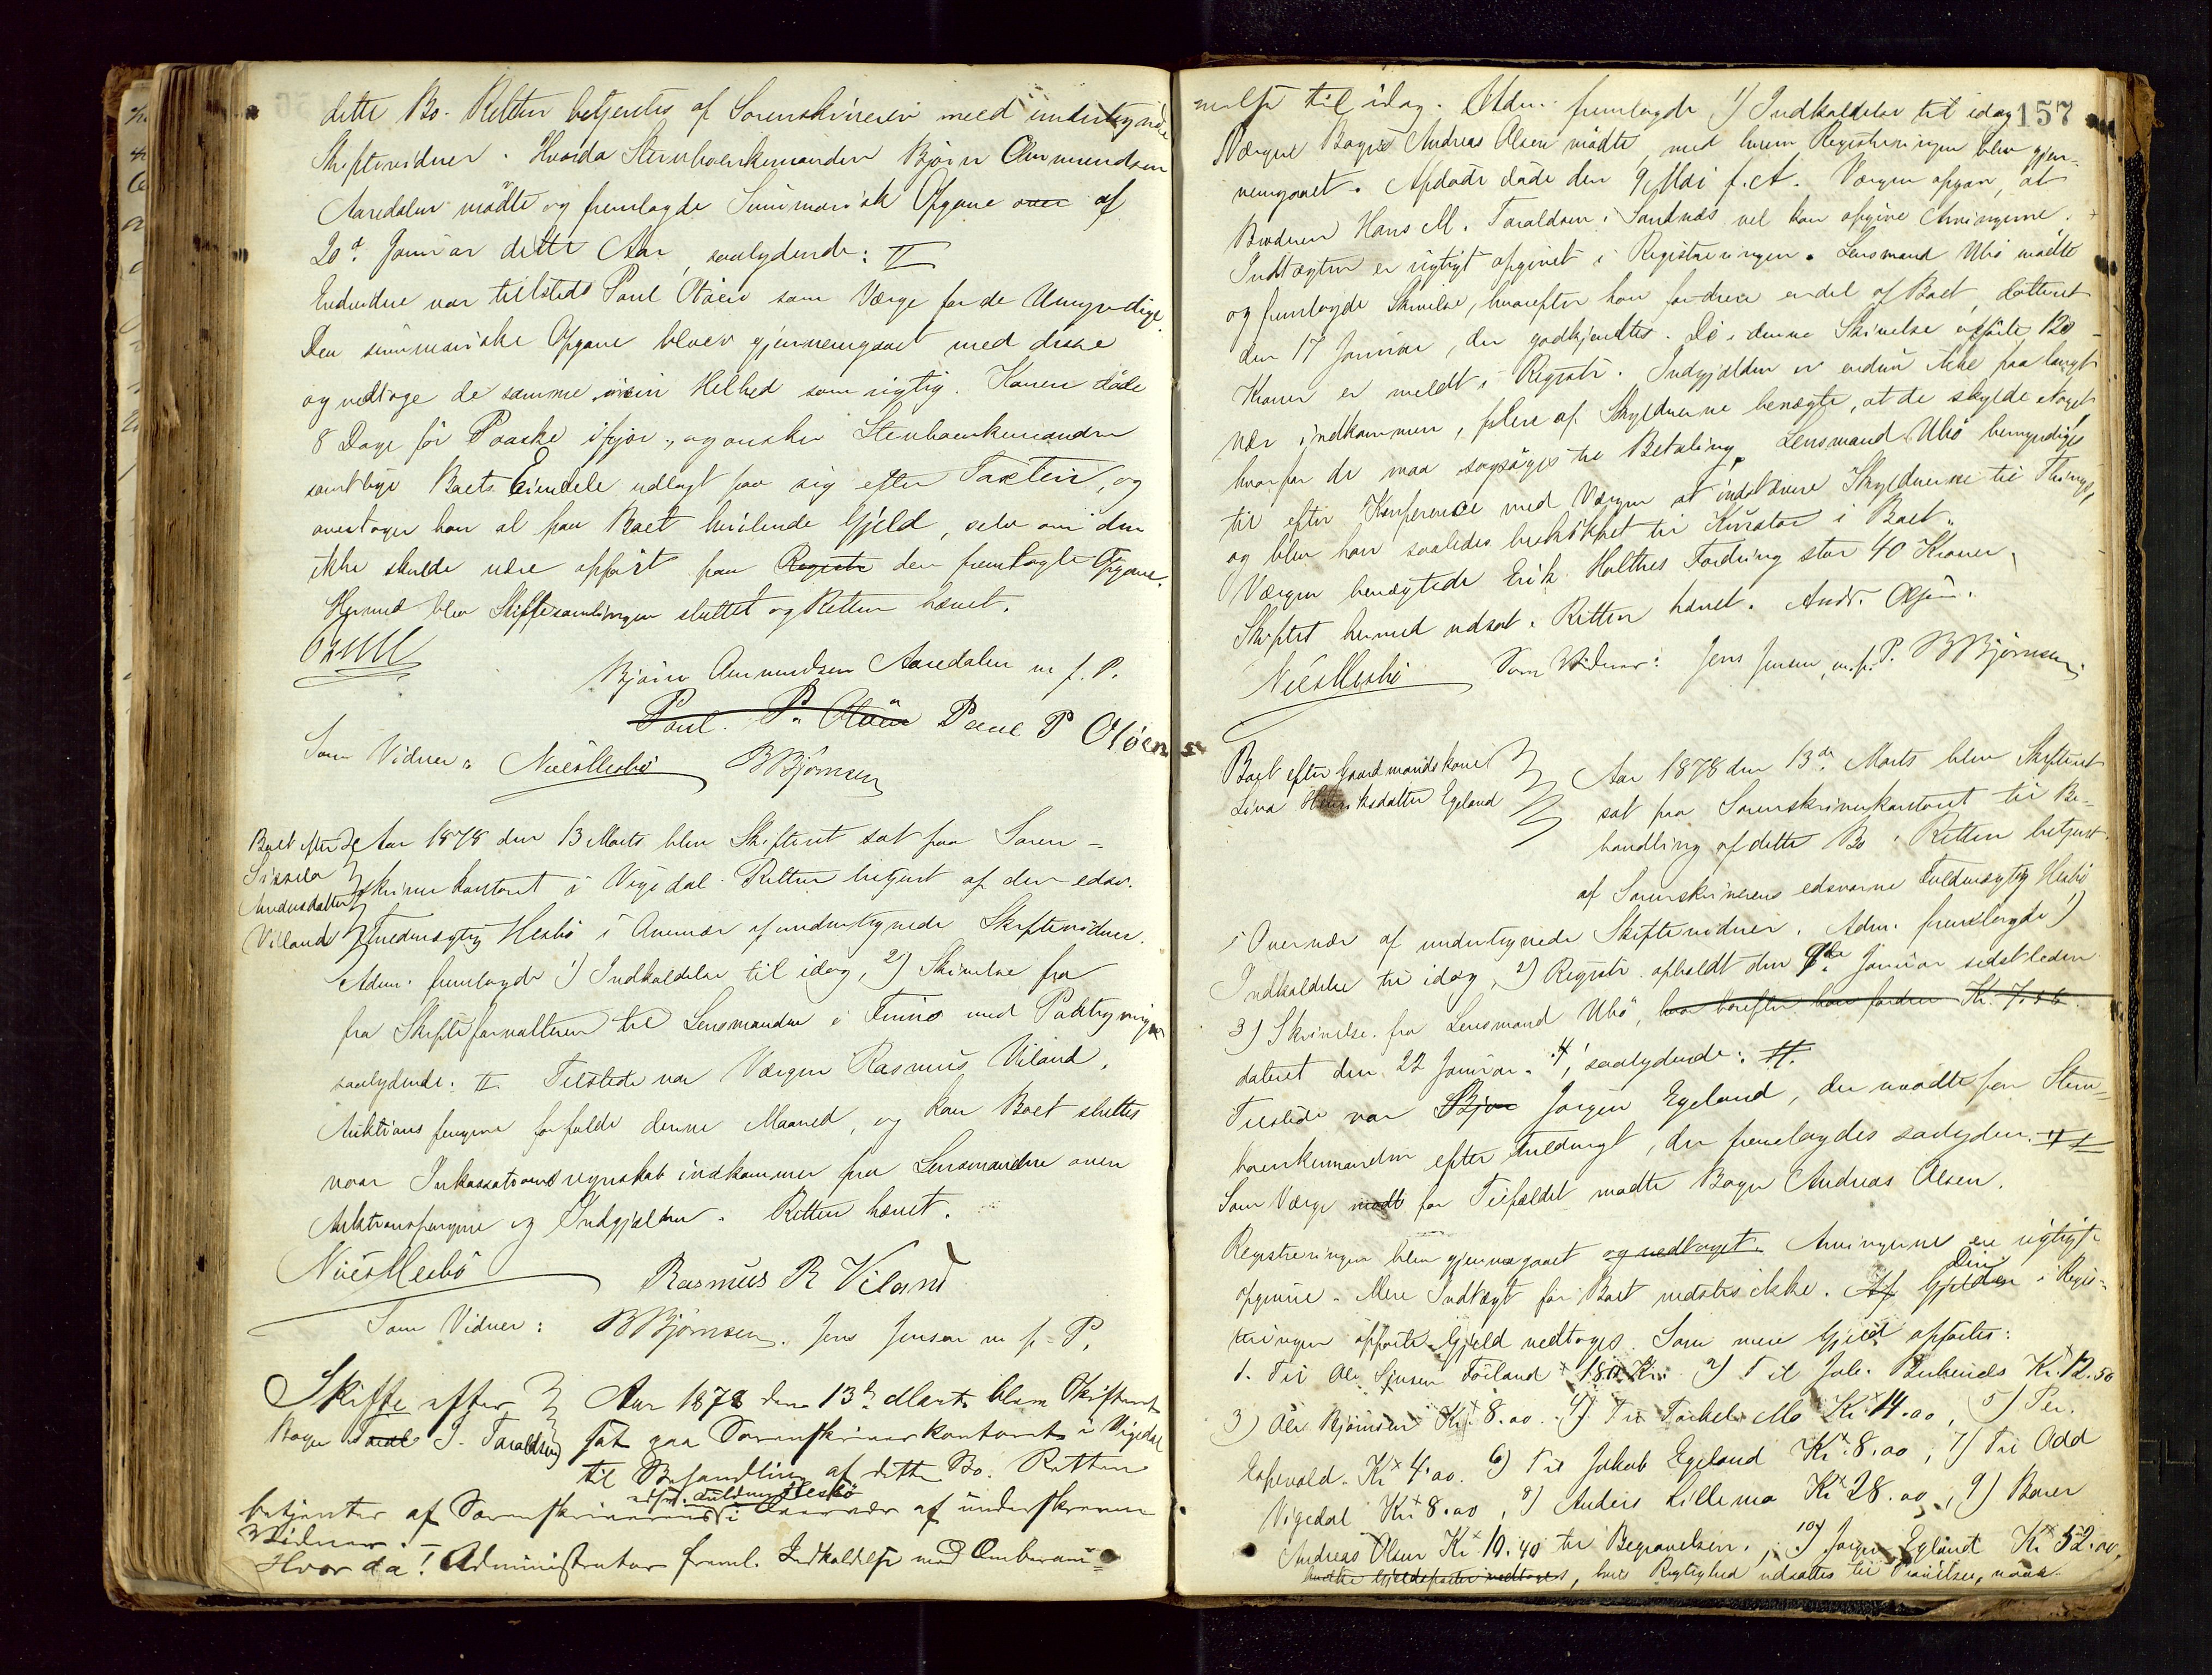 dette Bo. Retten betjentes af Sorenskriveren med undertegnede
Skiftevidner. Hvorda Stervboenkemanden Bjørn Aanmundsen
Aaredalen mødte og fremlagde Summarisk Opgave over af
20d Januar dette Aar, saalydende: #
Endvidere var tilstede Poul Otøen som Værge for de Umyndige.
Den summariske Opgave blev gjennemgaaet med disse
og vedtoge de samme i sin Helhed som rigtig. Konen døde
8 Dage før Paaske ifjor, og ønsker Stervboenkemanden
samtlige Boets Eiendele udlagt for sig efter Taxten, og
overtager han al paa Boet hvilende Gjeld, selv om den
ikke skulde være opført paa Registr den fremlagte Opgave.
Hermed blev Skiftesamlingen sluttet og Retten hævet.
Bjørn Aanmundsen Aaredalen m. f. P.
Poul P. Otøen Poul P Otøen
Som Vidner: Niels Hesbø BBjørnsen
Boet efter Aar 1878 den 13 Marts blev Skifteret sat paa Soren-
Sissela skriverkontoret i Vigedal. Retten betjent af den edsv.
Andersdatter
Viland Fuldmægtig Hesbø i Overvær af undertegnede Skiftevidner.
Adm. fremlagde 1) Indkaldelse til idag, 2) Skrivelse fra
fra Skifteforvalteren til Lensmanden i Finnø med Paategninger
saalydende: # Tilstede var Værgen Rasmus Viland.
Auktionspengene forfalde denne Maaned, og kan Boet sluttes
naar Inkassationsregnskab indkommer fra Lensmanden over
Auktionspengene og Indgjælden. Retten hævet.
Niels Hesbø Rasmus R Viland
Som Vidner: BBjørnsen. Jens Jensen m. f. P.
Skifte efter Aar 1878 den 13de Marts blev Skifteret
Bager Taral J. Taraldsen sat paa Sorenskriverkontoret i Vigedal
til Behandling af dette Bo. Retten
edsv. Fuldm. Hesbø
betjentes af Sorenskriverens i Overvær af underskrevne
Vidner:
Hvor da! Administrator freml. Indkaldelse med Omberam-
157
melse til idag. Adm. fremlagde 1) Indkaldelse til idag
Værgen Bager Andreas Olsen mødte, med hvem Registreringen blev gjen-
nemgaaet. Afdøde døde den 9 Mai f. A. Værgen opgav, at
Broderen Hans M. Taraldsen i Sandnæs vel kan opgive Arvingerne.
Indtægten er rigtigt opgivet i Registreringen. Lensmand Ubø mødte
og fremlagde Skrivelse, hvorefter han fordrer endel af Boet, datteret
den 17 Januar, der godkjendtes. De i denne Skrivelse opførte 120
Kroner er meldt i Registr. Indgjælden er endnu ikke paa langt
nær indkommen, flere af Skyldnerne benægte, at de skylde noget
hvorfor de maa sagsøges til Betaling. Lensmand Ubø bemyndiges
til efter Konference med Værgen at indstævne Skyldnerne til Things,
og blev han saaledes beskikket til Kurator i Boet.
Værgen benægtede Erik Holthes Fordring stor 40 Kroner.
Skiftet hermed udsat. Retten hævet. Andr. Olsen.
Niels Hesbø Som Vidner: Jens Jensen, m. f. P. BBjørnsen.
Boet efter Gaardmandskone Aar 1878 den 13de Marts blev Skifteret
Lina Henriksdatter Egeland sat paa Sorenskriverkontoret til Be-
handling af dette Bo. Retten betjent
af Sorenskriverens edsvorne Fuldmægtig Hesbø
i Overvær af undertegnede Skiftevidner. Adm. fremlagde 1)
Indkaldelse til idag, 2) Registr. afholdt den 9de Januar sidstleden
3) Skrivelse fra Lensmand Ubø, hvorefter han fordrer Kr. 7.56
dateret den 22 Januar. 4, saalydende: #.
Tilstede var Bjør Jørgen Egeland, der mødte for Sterv-
boenkemanden efter Fuldmagt, der fremlagdes saalydende: ##
Som Værge mødt for Tilfældet mødte Bager Andreas Olsen.
Registreringen blev gjennemgaaet og vedtaget. Arvingerne ere rigtigt
opgivne. Mere Indtægt for Boet vedstes ikke. Af Gjelden Den i Regis-
treringen opførte Gjeld vedtoges. Som mere Gjeld opførtes:
1. Til Ole Sjursen Føiland 180 Kr. 2) Til Joh. Birkenæs Kr. 12.50
3) Ole Bjørnsen Kr. 8.00. 4) Til Torkel Mo Kr. 14.00, 5) Per.
Espevold. Kr. 4.00. 6) Til Jakob Egeland Kr. 8.00, 7) Til Odd
Vigedal Kr. 8.00, 8) Anders Lillemo Kr. 28.00, 9) Bager
Andreas Olsen Kr. 10.40 til Begravelsen. 10) Jørgen Egeland Kr. 52.00,
hvilke Gjeldsposter vedtoges, hvis Rigtighed udsattes til Prøvelse, naar